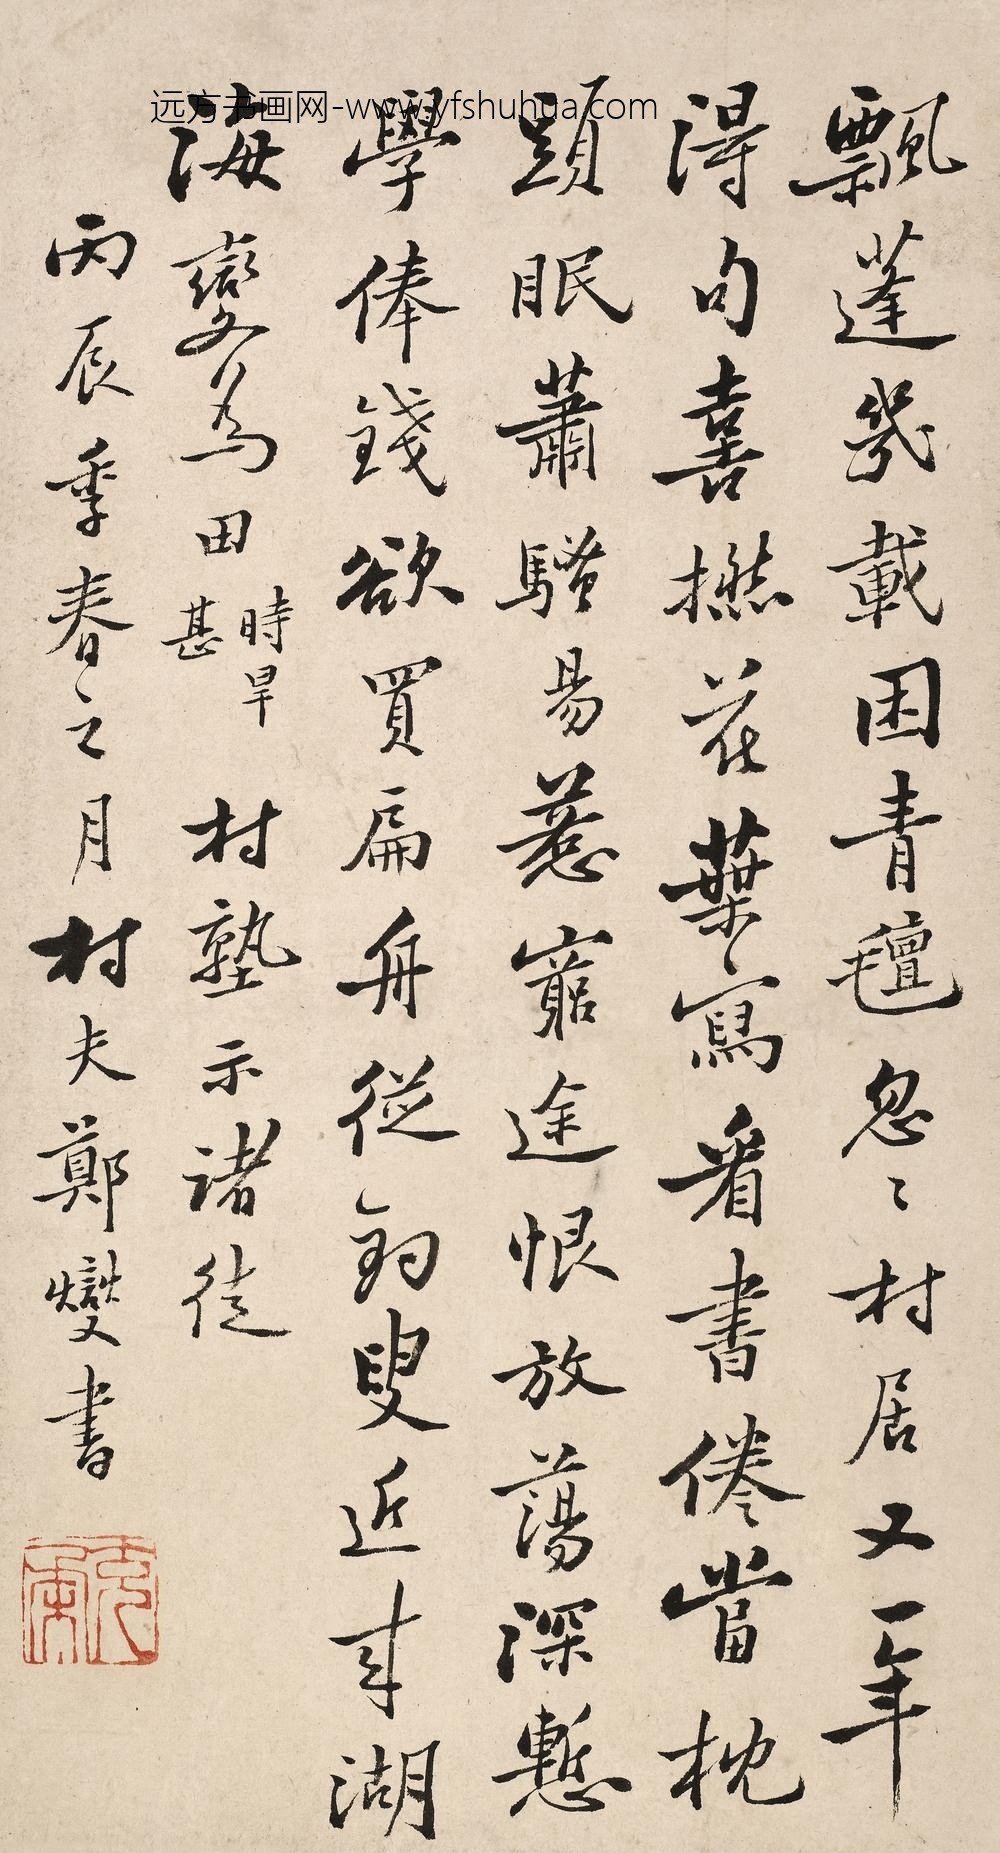 远方书画网-www.yfshuhua.com
飄蓬幾載困青氊忽〻村居又一年
得句喜撚花葉寫看書倦當枕
頭眠蕭騷易惹窮途恨放蕩深慙
學俸錢欲買扁舟從釣叟近來湖
海變為田時旱甚村塾示諸徒
丙辰季春之月村夫鄭燮書
克柔